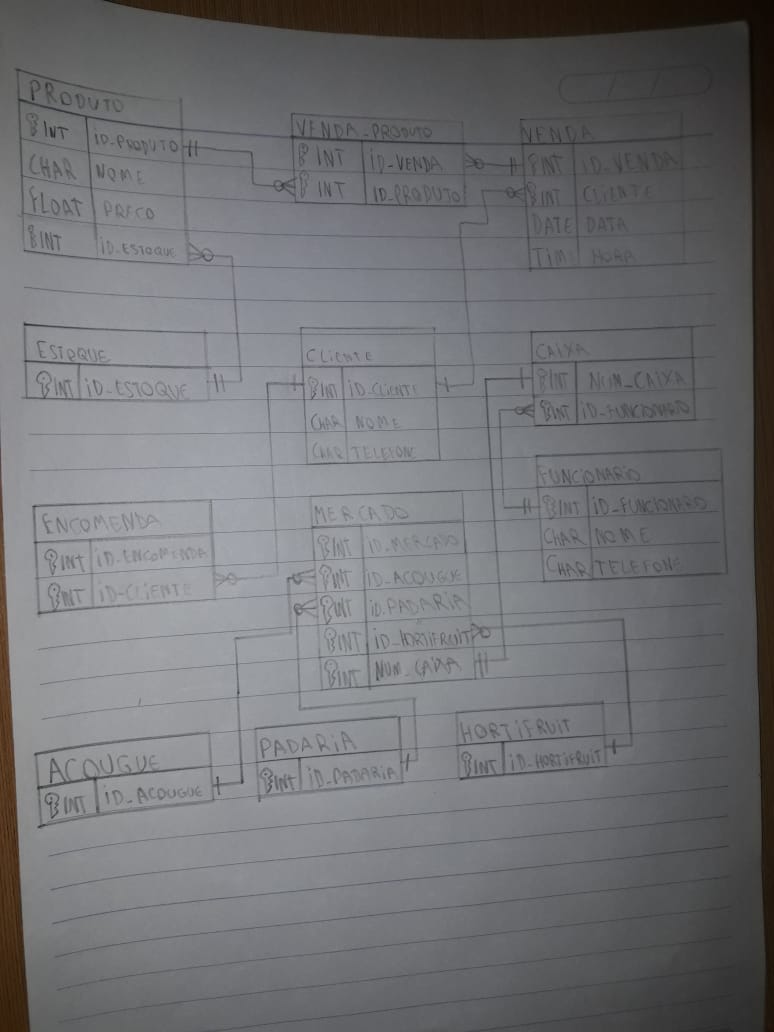 PRODUTO
INT ID_PRODUTO
CHAR NOME
FLOAT PRECO
INT ID_ESTOQUE
VENDA_PRODUTO
INT ID_VENDA
INT ID_PRODUTO
VENDA
INT ID_VENDA
INT CLIENTE
DATE DATA
TIME HORA
ESTOQUE
INT ID_ESTOQUE
CLIENTE
INT ID_CLIENTE
CHAR NOME
CHAR TELEFONE
CAIXA
INT NUM_CAIXA
INT ID_FUNCIONARIO
FUNCIONARIO
INT ID_FUNCIONARO
CHAR NOME
CHAR TELEFONE
ENCOMENDA
INT ID_ENCOMENDA
INT ID-CLIENTE
MERCADO
INT ID_MERCADO
INT ID_ACOUGUE
INT ID_PADARIA
INT ID_HORTIFRUIT
INT NUM_CAIXA
ACOUGUE
INT ID_ACOUGUE
PADARIA
INT ID_PADARIA
HORTIFRUIT
INT ID_HORTIFRUIT